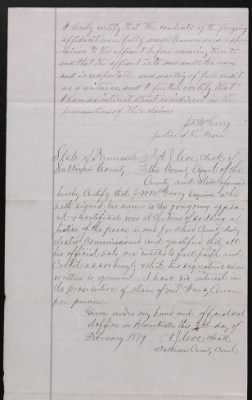 I hereby certify that the contents of the foregoing
affidavit were fully made known and
to the affiant before swearing thereto
and that the affiant is to me well known
and is respectable and worthy of full credit
as a witness, and I further certify that
I have no interest direct or indirect in the
prosecution of this claim
justice of the Peace
State of Tennessee
Sullivan County
Clerk of
the County Court of the
County and State afore
hereby Certify that
hath signed his name to the foregoing
&  Certificate was at the time of so doing a
justice of the peace in and for said County duly
elected Commissioned and qualified that all
his official acts are entitled to full faith and
Credit as such and that his signature above
written is genuine I have no interest in
the prosecution of claim of
for pension.
Given under my hand and official seal
at office in Blountville this day of
February 1879
Clerk
Sullivan County Court